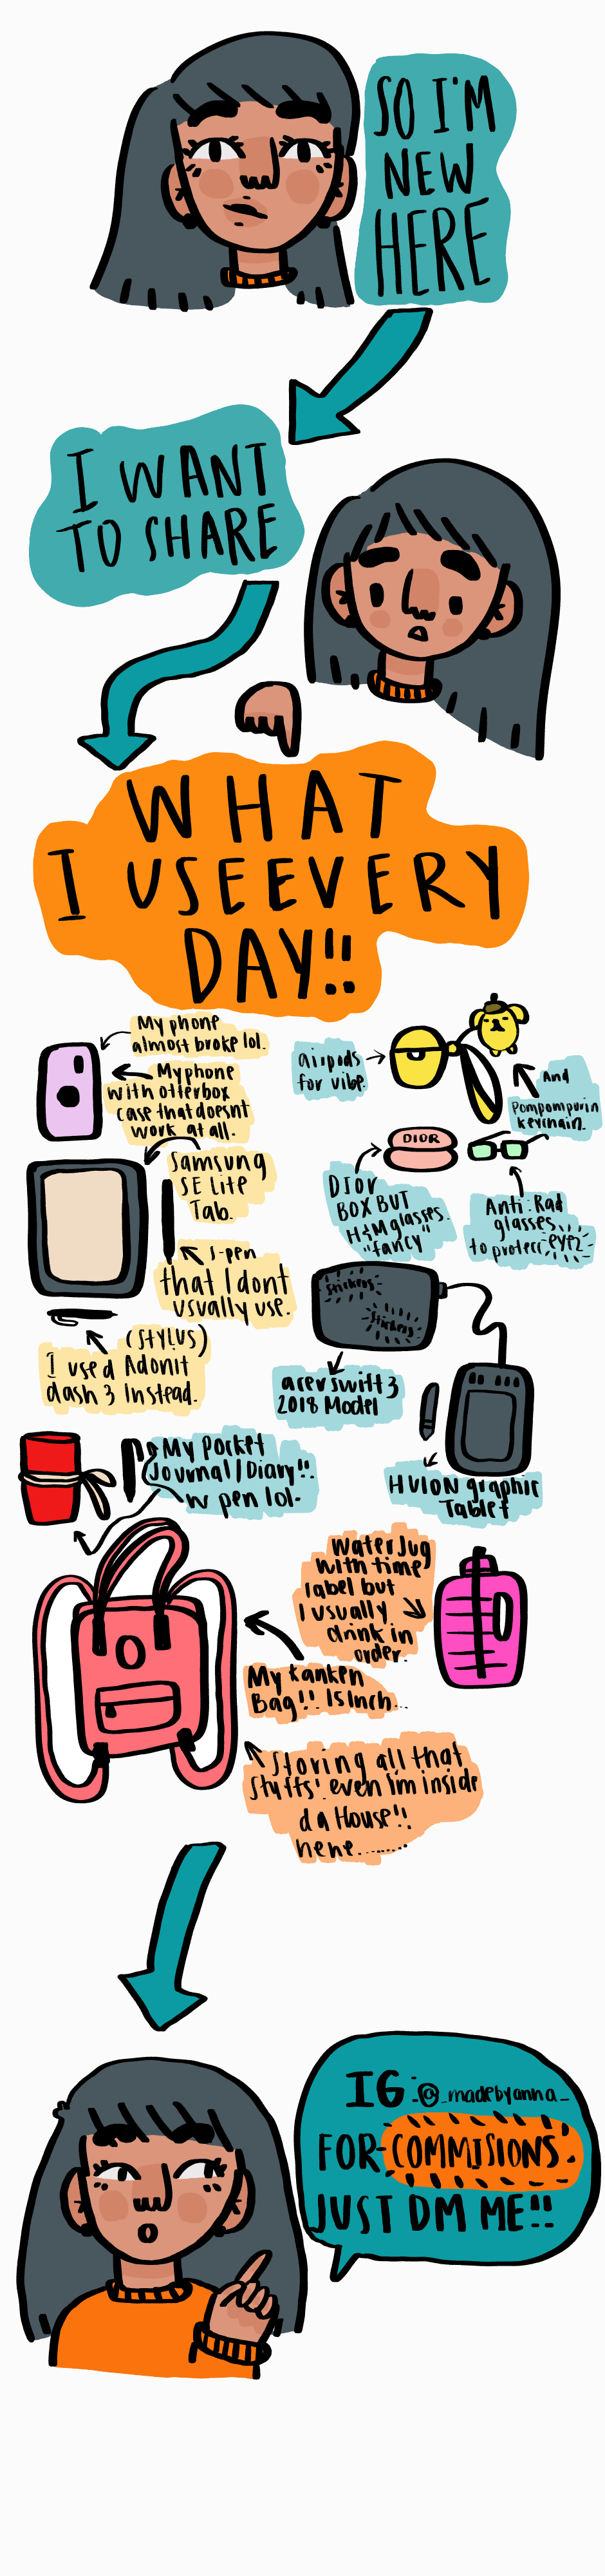 SO I'M
NEW
HERE
I WANT
TO SHARE
WHAT
I USE EVERY
DAY!!
My phone
almost broke lol.
My phone
with otterbox
case that doesnt
work at all.
Samsung
SE Lite
Tab.
S-pen
that I dont
usually use.
(STYLUS)
I used Adonit
dash 3 Instead.
airpods
for vibe.
And
Pompompurin
keychain.
DIOR
DIOR
BOX BUT
H&M glasses.
"fancy"
Anti:Rad
glasses
to protect eyez
Stickers
Stickers
acer swift 3
2018 Model
HUION graphic
Tablet
My Pocket
Journal/Diary!!
w pen lol.
Water Jug
with time
label but
I usually
drink in
order.
My kanken
Bag!! 15 Inch...
Storing all that
stuffs! even Im inside
da House!!
hehe........
IG:@_madebyanna_
FOR COMMISIONS.
JUST DM ME!!